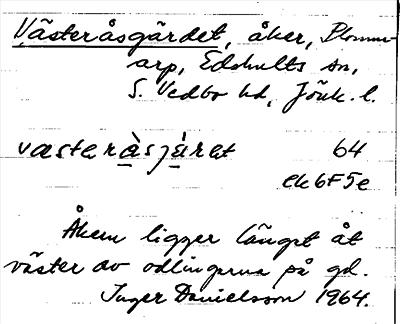 Västeråsgärdet, åker, Blomme-
arp, Edshults sn,
S. Vedbo hd, Jönk. l.
vasteràsjáret 64
ek 6F5e
Åkern ligger längst åt
väster av odlingarna på gd.
Inger Danielsson 1964.